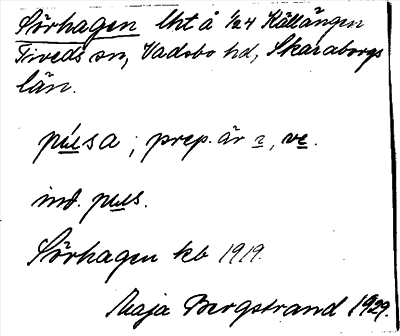 Sörhagen lht å 1/24 Källängen
Tiveds sn, Vadsbo hd, Skaraborgs
län.
púsa; prep. är i, ve.
ind. pus.
Sörhagen kb 1919.
Maja Bergstrand 1929.